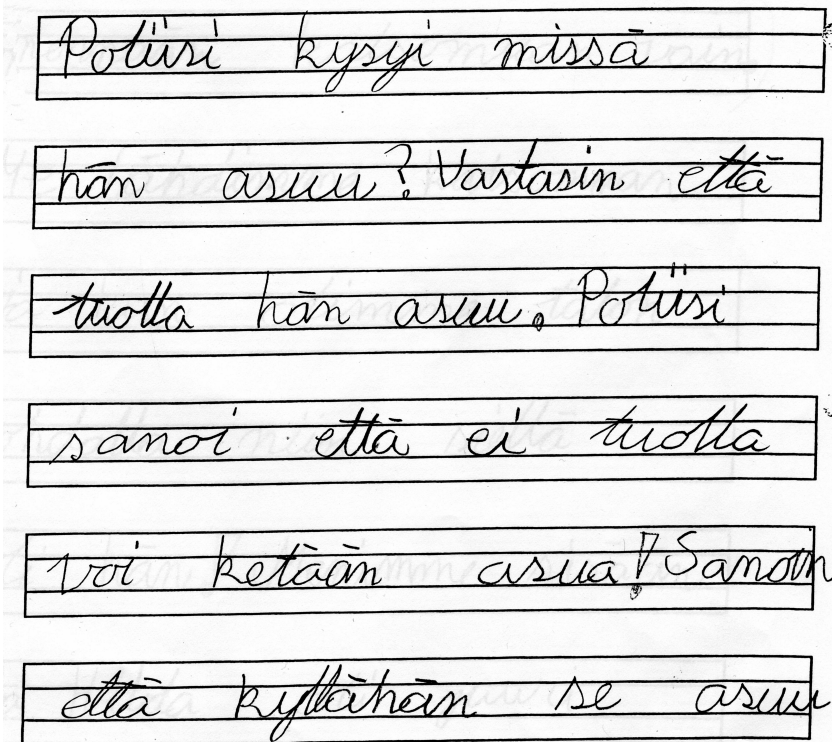 Poliisi kysyi missä
hän asuu? Vastasin että
tuolla hän asuu. Poliisi
sanoi että ei tuolla
voi ketään asua! Sanoin
että kyllähän se asuu